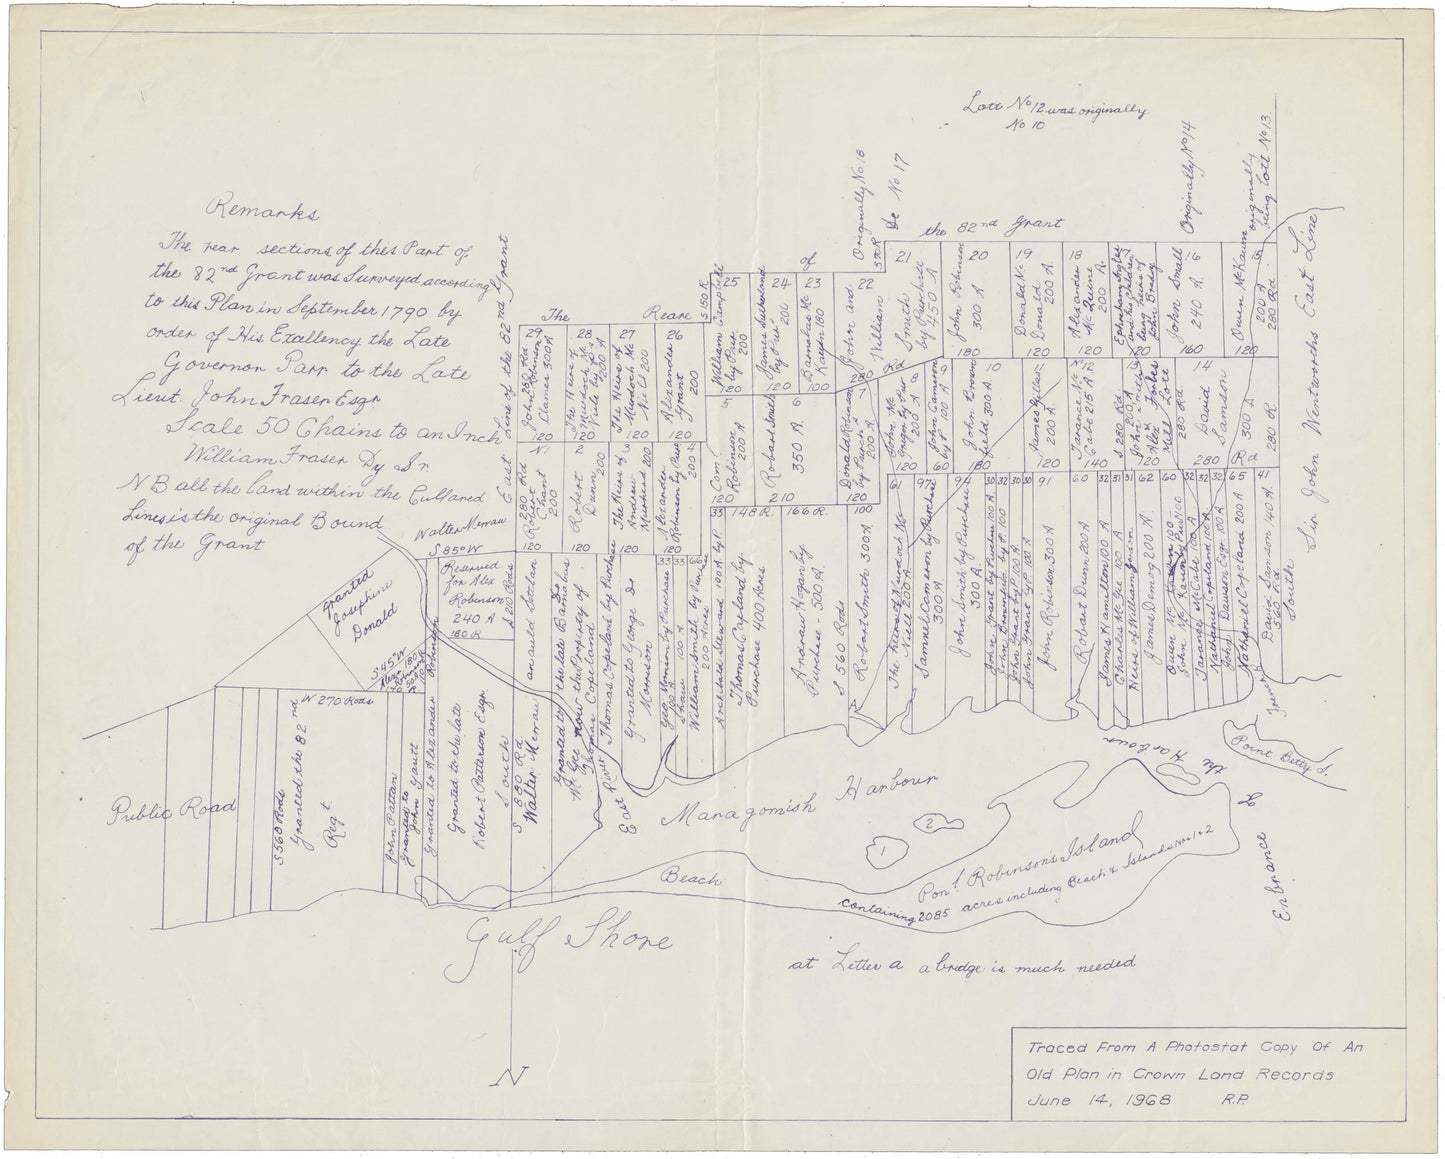 Lott No 12 was originally
No 10
Remarks
The rear sections of this Part of
the 82nd Grant was Surveyed according
to this Plan in September 1790 by
order of His Exallency the Late
Governor Parr to the Late
Lieut. John Fraser Esqr
Scale 50 Chains to an Inch
William Fraser Dy Sr
NB all the land within the Cullored
Lines is the original Bound
of the Grant
East Line of the 82nd Grant
The Reare of the 82nd Grant
Originally No 18
De No 17
Originally No 14
originally
being Lott No 13
Sir John Wentworths East Line
S 150 R
S 70 R
29
280 Rd
John Robinson
Clames 300 A
120
28
The Heirs of
Murdoch Mc
120
27
The Heirs of
Murdoch Mc
Niel 200
120
26
Alexander
Grant
200
120
25
William Campbell
by Pur.
200
120
24
James Sutherland
by Pur
200
120
23
Barnabas Mc
180
100
22
John and
William
21
Smith
by Purchase
450 A
20
John Robinson
300 A.
180
19
Donald Mc
Donald
200 A.
120
18
Alexander
Mc Quine
200 A.
120
Ephram Hyler
and his Children
being heirs of
John Brady
120
16
John Small
240 A.
160
15
Owen McKawn
200 A
280 Rd.
120
Rd
No 1
280 Rd
Robert
Chant
200
120
2
Robert
Dunn
200
120
3
The Heirs of
Andrew
Muirhead 200
120
4
Alexander
Robinson by Pur
200
120
5
Com.t
Robinson
200 A.
120
6
Robert Smith
350 A.
210
7
Donald Robinson
by Purch
200 A
120
8
John Mc
Gregor by Pur
200 A
120
9
John Cameron
by P 100 A
60
10
John Browne
field 300 A.
180
James Fillis
200 A.
120
Tarance Mc
Cabe 215 A
140
S 280 Rd
John Smith
200 A
Alex Forbes
Mill Lott
280 Rd
120
14
David
Samson
300 A
280 R
280 Rd
Walter Merraw
S 85° W
Reserved
for Alex
Robinson
240 A
180 R
S 210 Rods
granted
Josephine
Donald
S 45° W
W 270 Rods
Public Road
S 560 Rods
Granted the 82nd
Regt
John Pattan
Granted to
John Gautt
Granted to Alexander Robinson
Granted to the late
Robert Patterson Esqr
South
S 880 Rd.
Walter Merraw
an auld Settlan
Granted to the late Barnabus
Mc Gee now the Property of
Thomas Copeland
Thomas Copeland by Purchase
East River
Granted to George Dr
Morrison
33
Geo Morrison by Purchase
100 A
33
Shaw 100 A
66
William Smith by Purchase
200 Acres
33
Archibald Steward 100 A by P
148 R
Thomas Capland by
Purchase 400 Acres
166 R.
Andraw Hogan by
Purchase - 500 A.
S 560 Rods
100
Robart Smith 300 A
61
The heirs of Murdoch Mc
Niell 200 A
97
Samuel Cameron by Purchase
300 A
94
John Smith by Purchase
300 A
30
John Grant by Purchase 100 A
32
John Brownfield by P. 100
30
John Grant by P 100 A
30
John Grant by P. 100 A
91
John Robinson 300 A
60
Robart Dunn 200 A
32
James Hamilton 100 A
31
Charles Mc Gie 100 A
31
Heirs of William Jordan
62
James Demog 200 A.
60
Owen Mc
John Mc Kawn
32
Tarance McCabe 100 A
32
Nathaniel Copeland 100 A
32
John Dawson Esqr 100 A
65
Nathaniel Copeland 200 A
41
David Samson 140 A.
560 Rd
South
A
Maragomish Harbour
1
2
Beach
Pon.t Robinson's Island
containing 2085 acres including Beach & Islands Nos 1 & 2
Point Betty I.
Enbrance of the Harbour
Gulf Shore
at Letter a a bridge is much needed
N
Traced From A Photostat Copy Of An
Old Plan in Crown Land Records
June 14, 1968 R.P.